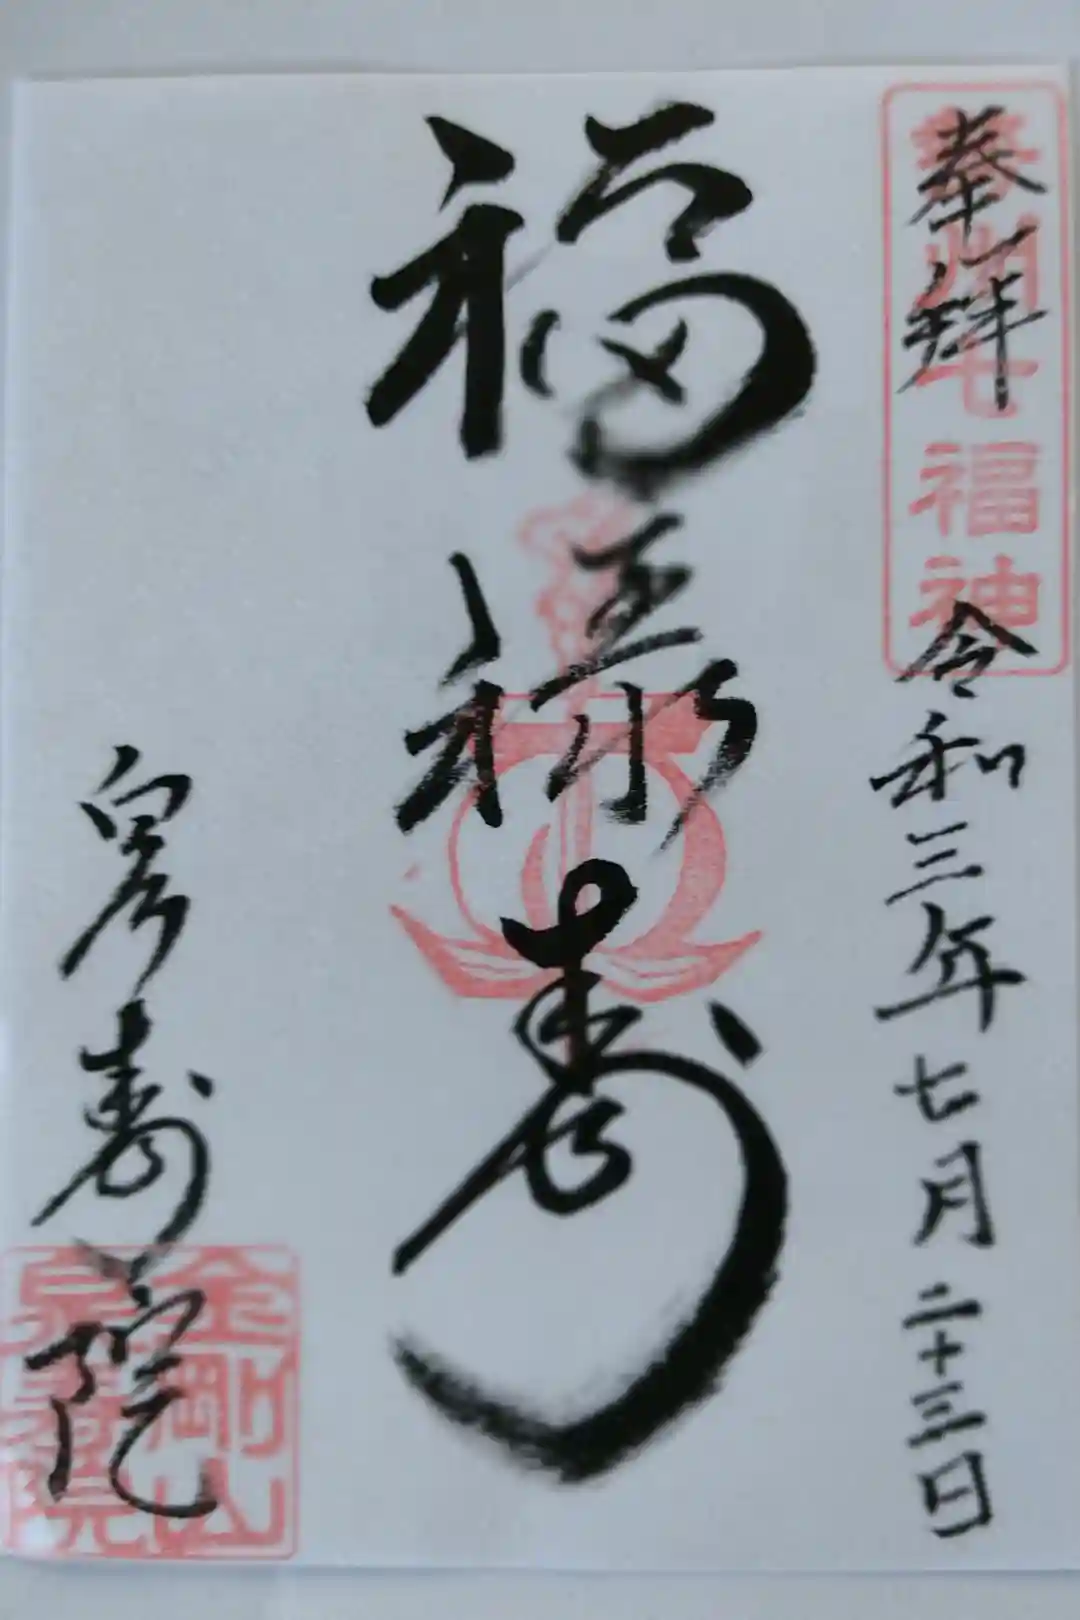 奉拝
州七福神
令和三年七月二十三日
福禄寿
泉寿院
金剛山